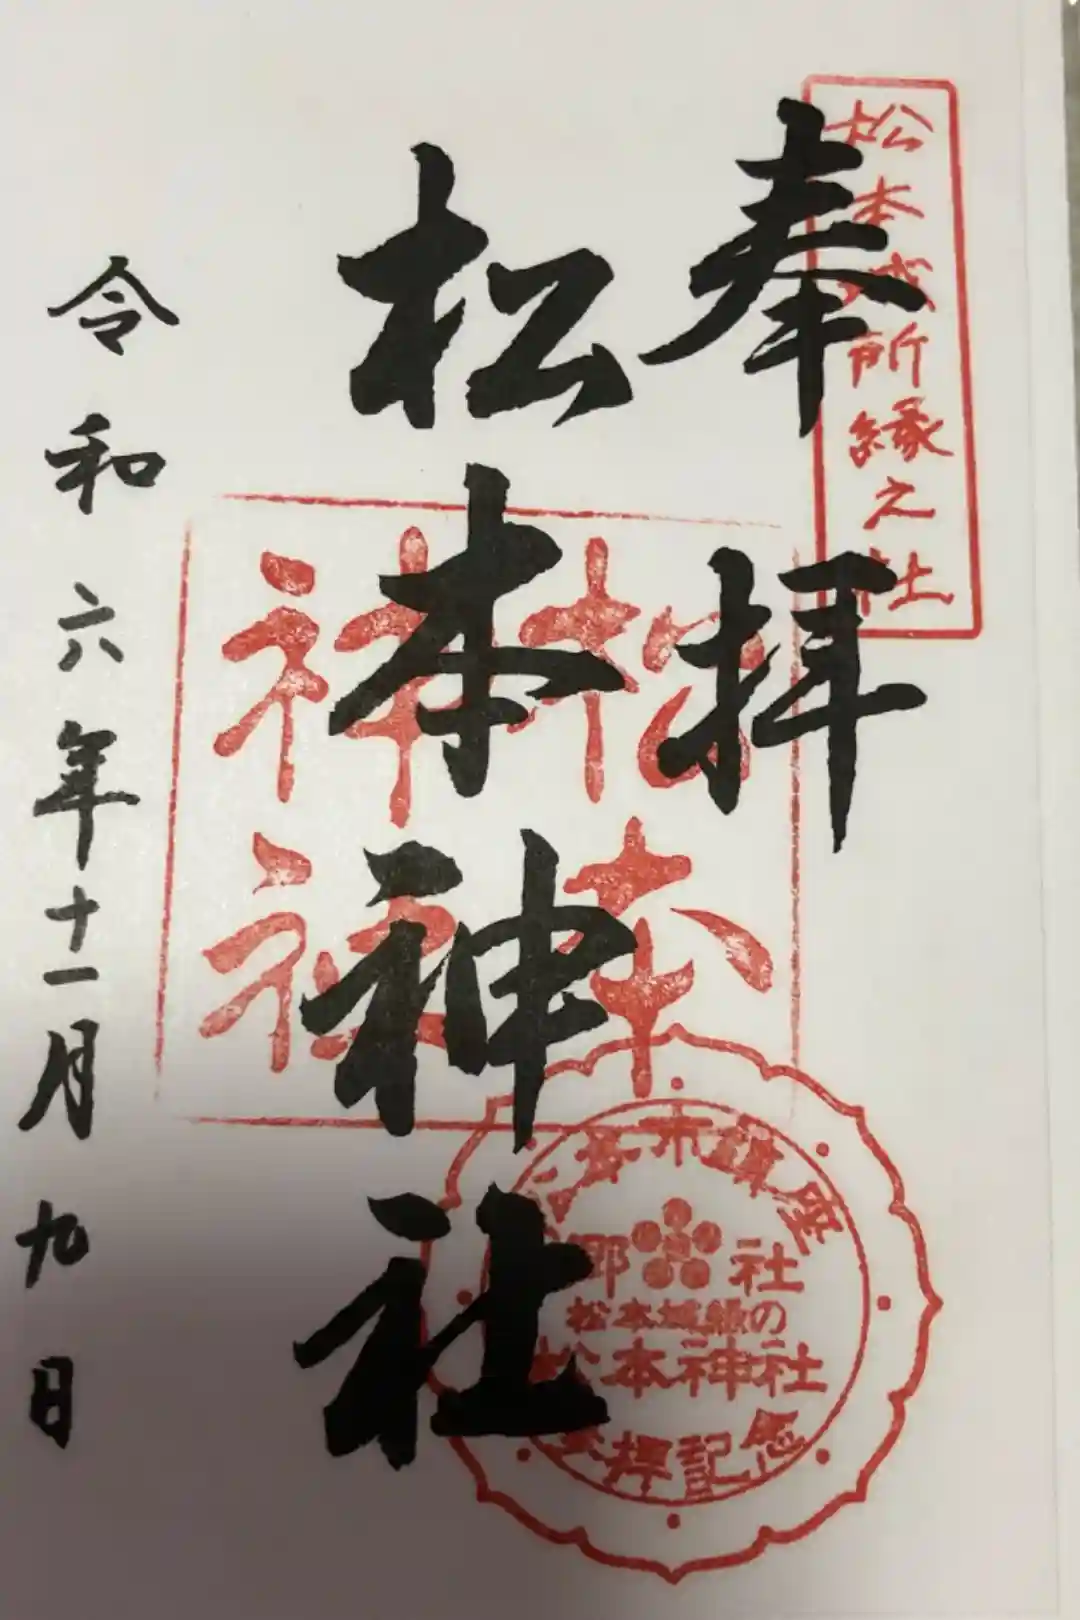 松本城所縁之社
奉拝
松本神社
松本
神社
鎮座
郷社
松本城縁の
松本神社
奉拝記念
令和六年十一月九日